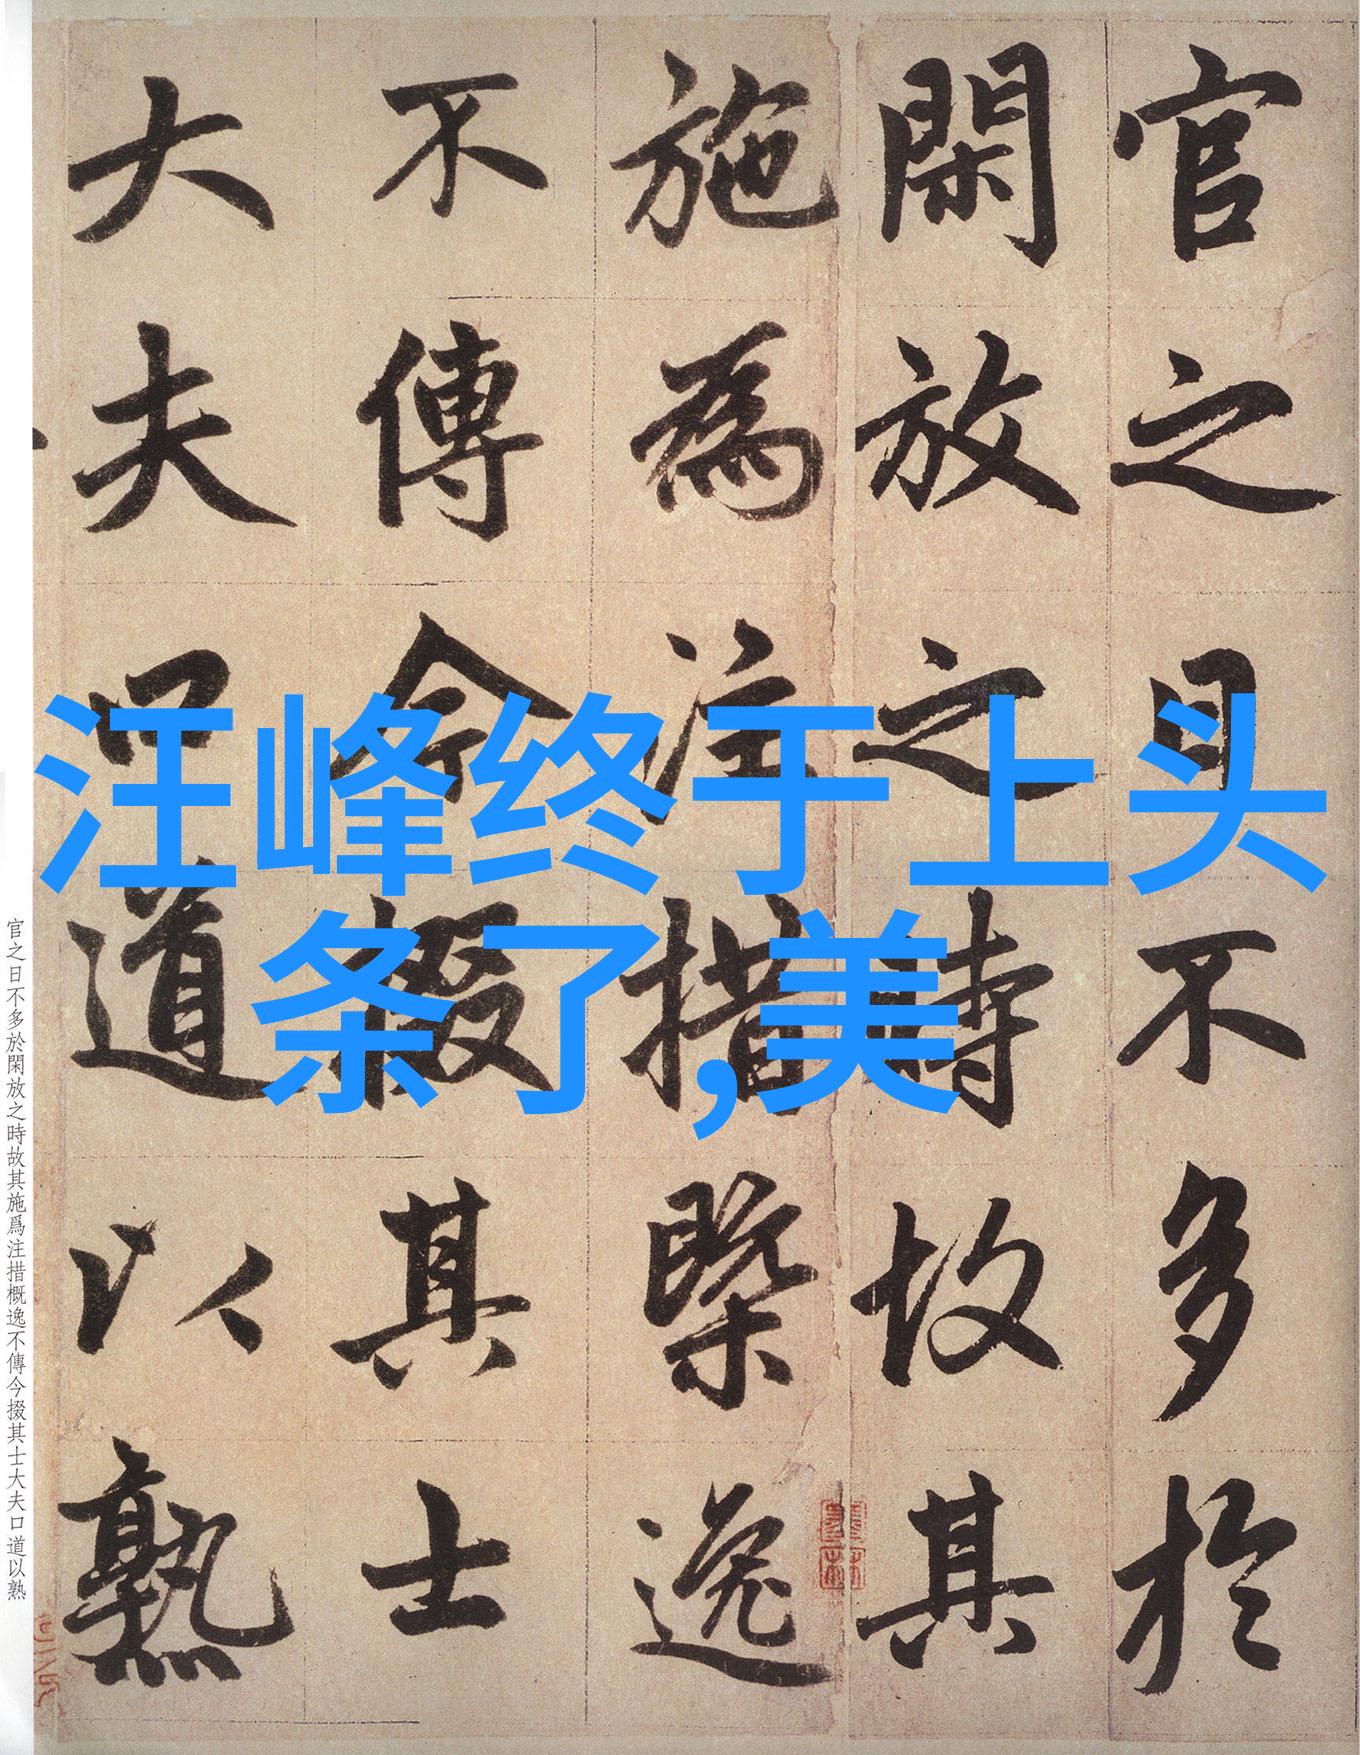 官之日不多於
閑放之時故其
施為注措槩逸
不傳今掇其士
大夫口道以熟
汪峰终于上头
条了,美
官之日不多於閑放之時故其施爲注措概逸不傳今掇其士大夫口道以熟